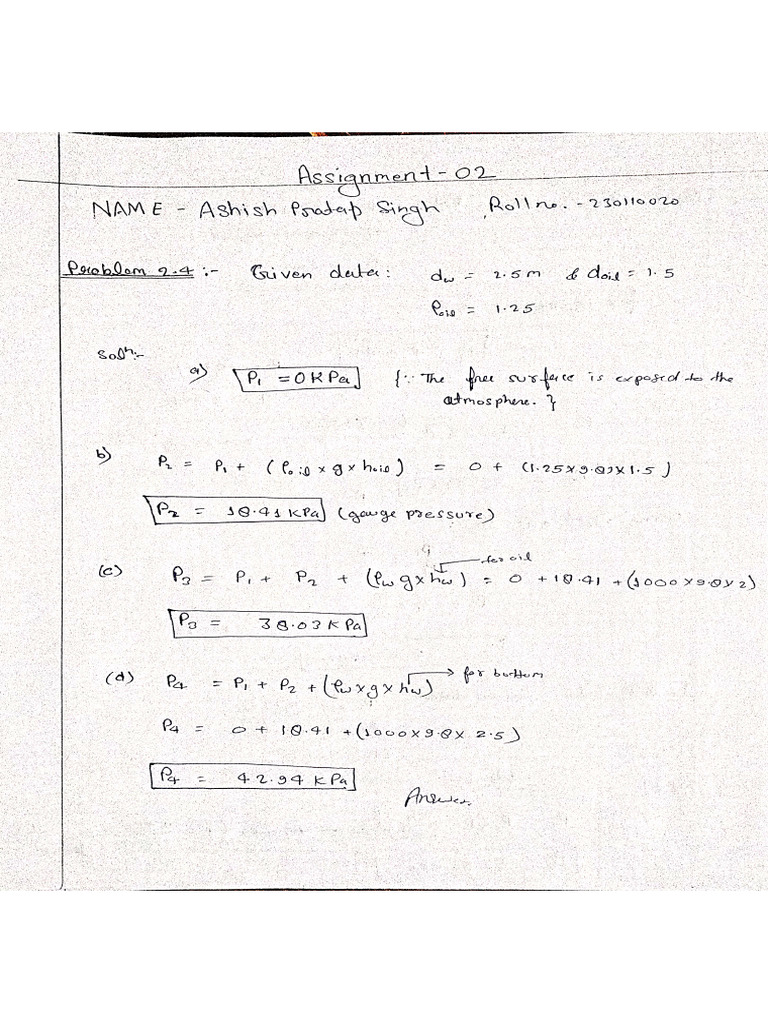 Assignment-02
NAME - Ashish Pratap Singh Roll no. - 230110020
Problem 2.4 :- Given data: dw = 2.5m & doil = 1.5
ρoil = 1.25
Solⁿ:-
a) P₁ = 0 KPa {∵ The free surface is exposed to the
atmosphere.}
b) P₂ = P₁ + (ρoil × g × hoil) = 0 + (1.25×9.8)×1.5)
P₂ = 18.41 KPa (gauge pressure)
for oil
(c) P₃ = P₁ + P₂ + (ρw g × hw) = 0 + 18.41 + (1000×9.8×2)
P₃ = 38.03 KPa
(d) P₄ = P₁ + P₂ + (ρw × g × hw) → for bottom
P₄ = 0 + 18.41 + (1000×9.8× 2.5)
P₄ = 42.94 KPa
Answer.